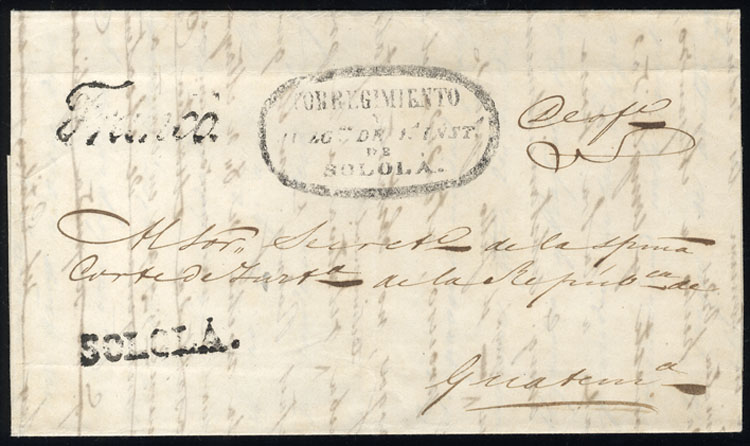 Franco.
CORREGIMIENTO
Y
JUZG.º DE 1.ª INST.
DE
SOLOLÁ.
De ofº
Al Sor. Secretº de la spma
Corte de Justª de la Repúbca de
Guatemª
SOLOLÁ.